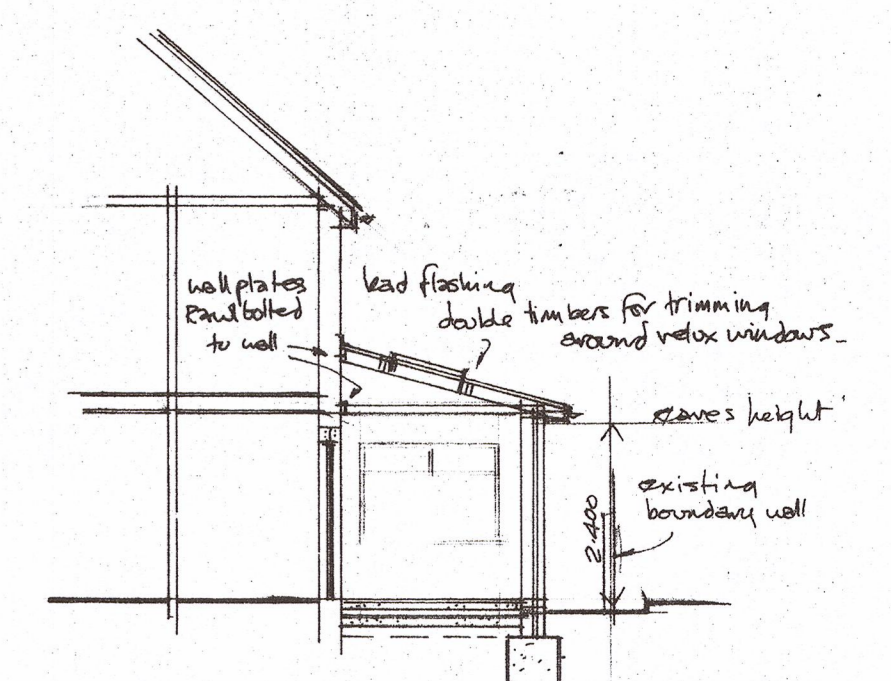 wall plates
Rawlbolted
to wall
lead flashing
double timbers for trimming
around velux windows
eaves height
existing
boundary wall
2.400